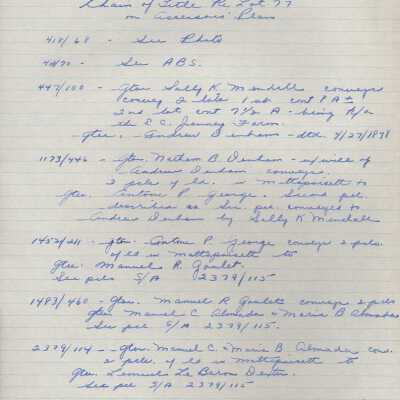 Chain of Title Re Lot 77
on Assessors' Plans
418/68 - See Photo
- See ABS.
447/100 - Gtor Sally K. Mendell conveys
convey 2 lots 1st cont 9 A ±
2nd lot cont 7½ A - being P/o
the Farm.
Gtee. - Andrew Denham - dtd 4/27/1878
1173/446 - Gtor. Nathan B. Denham - ex/will of
Andrew Denham conveys
2 pcls of ld. in Mattapoisett to
Gtee. Antone P. George. Second pcl.
describes as See pcl. conveyed to
Andrew Denham by Sally K Mendell
1452/211 - gtor. Antone P. George conveys 2 pcls.
of ld in Mattapoisett to
Gtee: Manuel R. Goulet.
See pcls S/A 2379/115
1483/460 - Gtor. Manuel R Goulet conveys 2 pcls
gtee Manuel C Almada & Maria B Almada
See pcl S/A 2379/115.
2379/114 - Gtor. Manuel C. & Maria B. Almada con.
2 pcls. of ld in Mattapoisett to
Gtee. Lemuel Le Baron Dexter.
See pcl S/A 2379/115